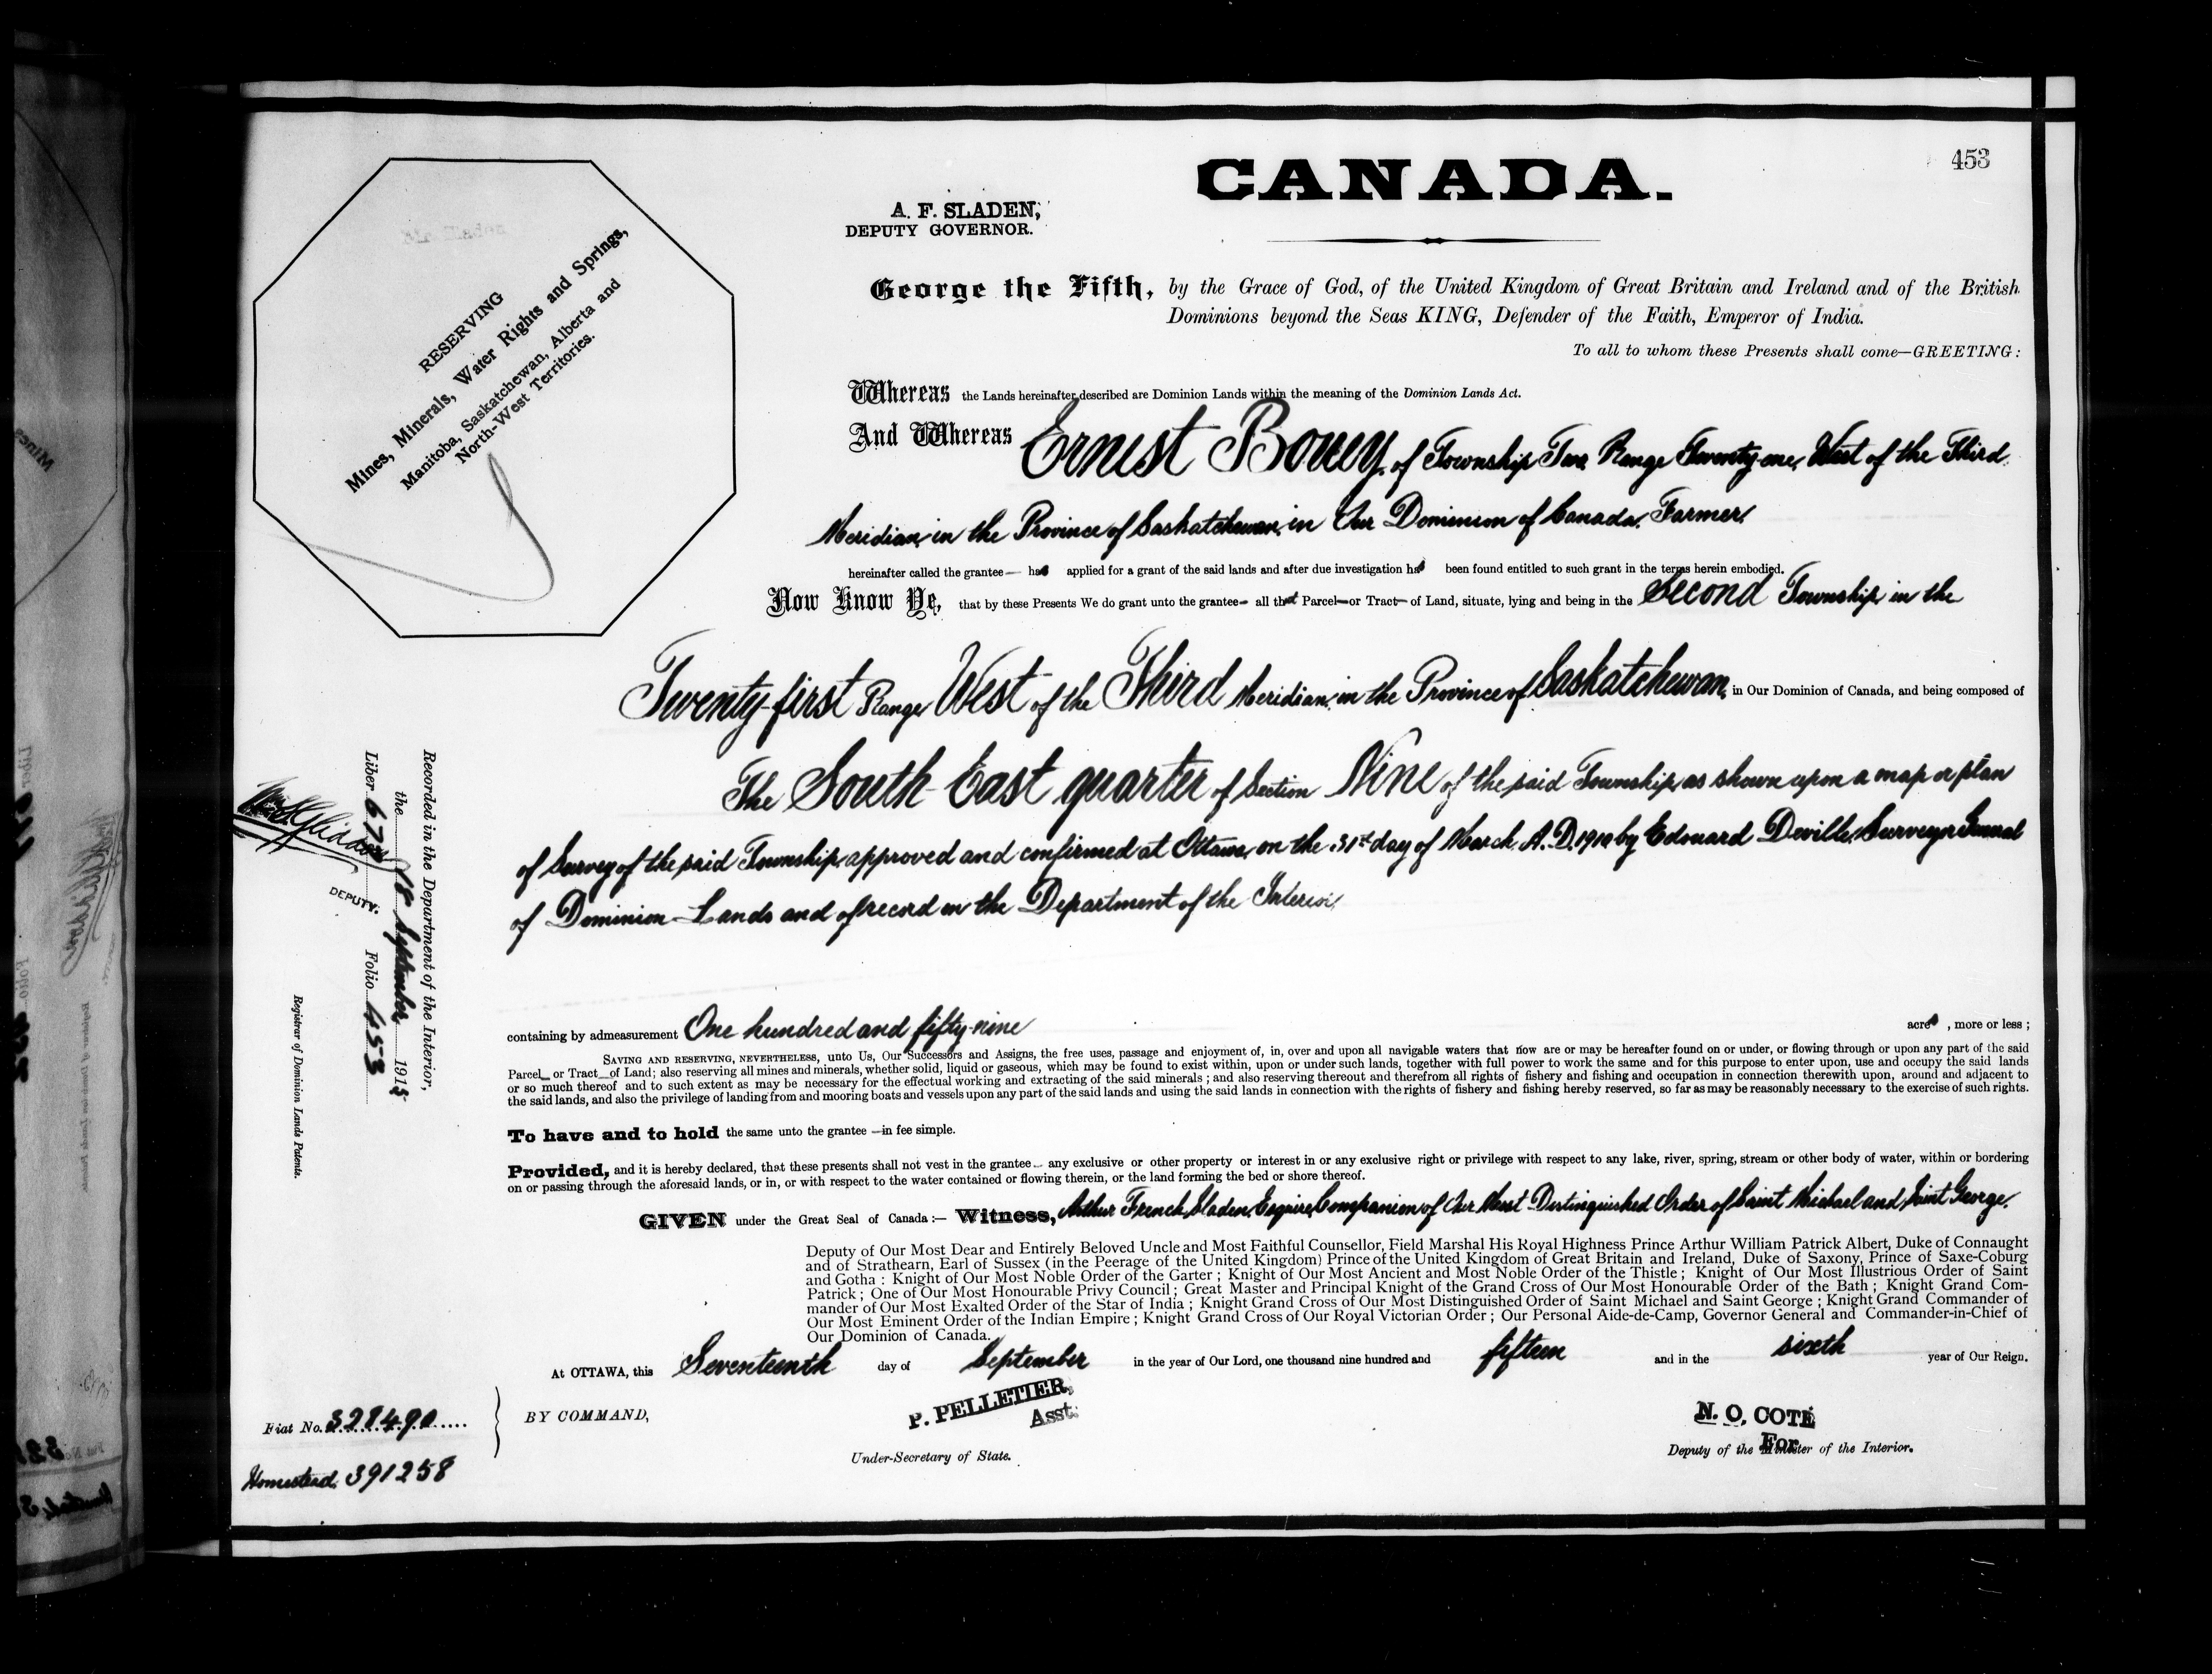 453
CANADA.
A. F. SLADEN,
DEPUTY GOVERNOR.
RESERVING
Mines, Minerals, Water Rights and Springs,
Manitoba, Saskatchewan, Alberta and
North-West Territories.
George the Fifth, by the Grace of God, of the United Kingdom of Great Britain and Ireland and of the British
Dominions beyond the Seas KING, Defender of the Faith, Emperor of India.
To all to whom these Presents shall come—GREETING:
Whereas the Lands hereinafter described are Dominion Lands within the meaning of the Dominion Lands Act.
And Whereas Ernest Bouey, of Township Two, Range Twenty-one, West of the Third
Meridian, in the Province of Saskatchewan, in Our Dominion of Canada, Farmer,
hereinafter called the grantee— has applied for a grant of the said lands and after due investigation has been found entitled to such grant in the terms herein embodied.
Now Know Ye, that by these Presents We do grant unto the grantee— all that Parcel—or Tract— of Land, situate, lying and being in the Second Township, in the
Twenty-first Range West of the Third Meridian, in the Province of Saskatchewan, in Our Dominion of Canada, and being composed of
The South East quarter of Section Nine of the said Township, as shown upon a map or plan
of Survey of the said Township, approved and confirmed at Ottawa, on the 31st day of March A.D. 1910 by Edouard Deville, Surveyor General
of Dominion Lands and of record in the Department of the Interior,
containing by admeasurement One hundred and fifty-nine acres , more or less ;
SAVING AND RESERVING, NEVERTHELESS, unto Us, Our Successors and Assigns, the free uses, passage and enjoyment of, in, over and upon all navigable waters that now are or may be hereafter found on or under, or flowing through or upon any part of the said
Parcel_ or Tract_of Land; also reserving all mines and minerals, whether solid, liquid or gaseous, which may be found to exist within, upon or under such lands, together with full power to work the same and for this purpose to enter upon, use and occupy the said lands
or so much thereof and to such extent as may be necessary for the effectual working and extracting of the said minerals ; and also reserving thereout and therefrom all rights of fishery and fishing and occupation in connection therewith upon, around and adjacent to
the said lands, and also the privilege of landing from and mooring boats and vessels upon any part of the said lands and using the said lands in connection with the rights of fishery and fishing hereby reserved, so far as may be reasonably necessary to the exercise of such rights.
To have and to hold the same unto the grantee —in fee simple.
Provided, and it is hereby declared, that these presents shall not vest in the grantee— any exclusive or other property or interest in or any exclusive right or privilege with respect to any lake, river, spring, stream or other body of water, within or bordering
on or passing through the aforesaid lands, or in, or with respect to the water contained or flowing therein, or the land forming the bed or shore thereof.
GIVEN under the Great Seal of Canada :— Witness, Arthur French Sladen, Esquire, Companion of Our Most Distinguished Order of Saint Michael and Saint George,
Deputy of Our Most Dear and Entirely Beloved Uncle and Most Faithful Counsellor, Field Marshal His Royal Highness Prince Arthur William Patrick Albert, Duke of Connaught
and of Strathearn, Earl of Sussex (in the Peerage of the United Kingdom) Prince of the United Kingdom of Great Britain and Ireland, Duke of Saxony, Prince of Saxe-Coburg
and Gotha : Knight of Our Most Noble Order of the Garter ; Knight of Our Most Ancient and Most Noble Order of the Thistle ; Knight of Our Most Illustrious Order of Saint
Patrick ; One of Our Most Honourable Privy Council ; Great Master and Principal Knight of the Grand Cross of Our Most Honourable Order of the Bath ; Knight Grand Com-
mander of Our Most Exalted Order of the Star of India ; Knight Grand Cross of Our Most Distinguished Order of Saint Michael and Saint George ; Knight Grand Commander of
Our Most Eminent Order of the Indian Empire ; Knight Grand Cross of Our Royal Victorian Order ; Our Personal Aide-de-Camp, Governor General and Commander-in-Chief of
Our Dominion of Canada.
At OTTAWA, this Seventeenth day of September in the year of Our Lord, one thousand nine hundred and fifteen and in the sixth year of Our Reign.
BY COMMAND,
P. PELLETIER,
Asst.
Under-Secretary of State.
N. O. COTÉ
For
Deputy of the Minister of the Interior.
Fiat No. 328490
Homestead. 391258
Recorded in the Department of the Interior,
the 18 September 1915
Liber 678 Folio 453
DEPUTY.
Registrar of Dominion Lands Patents.